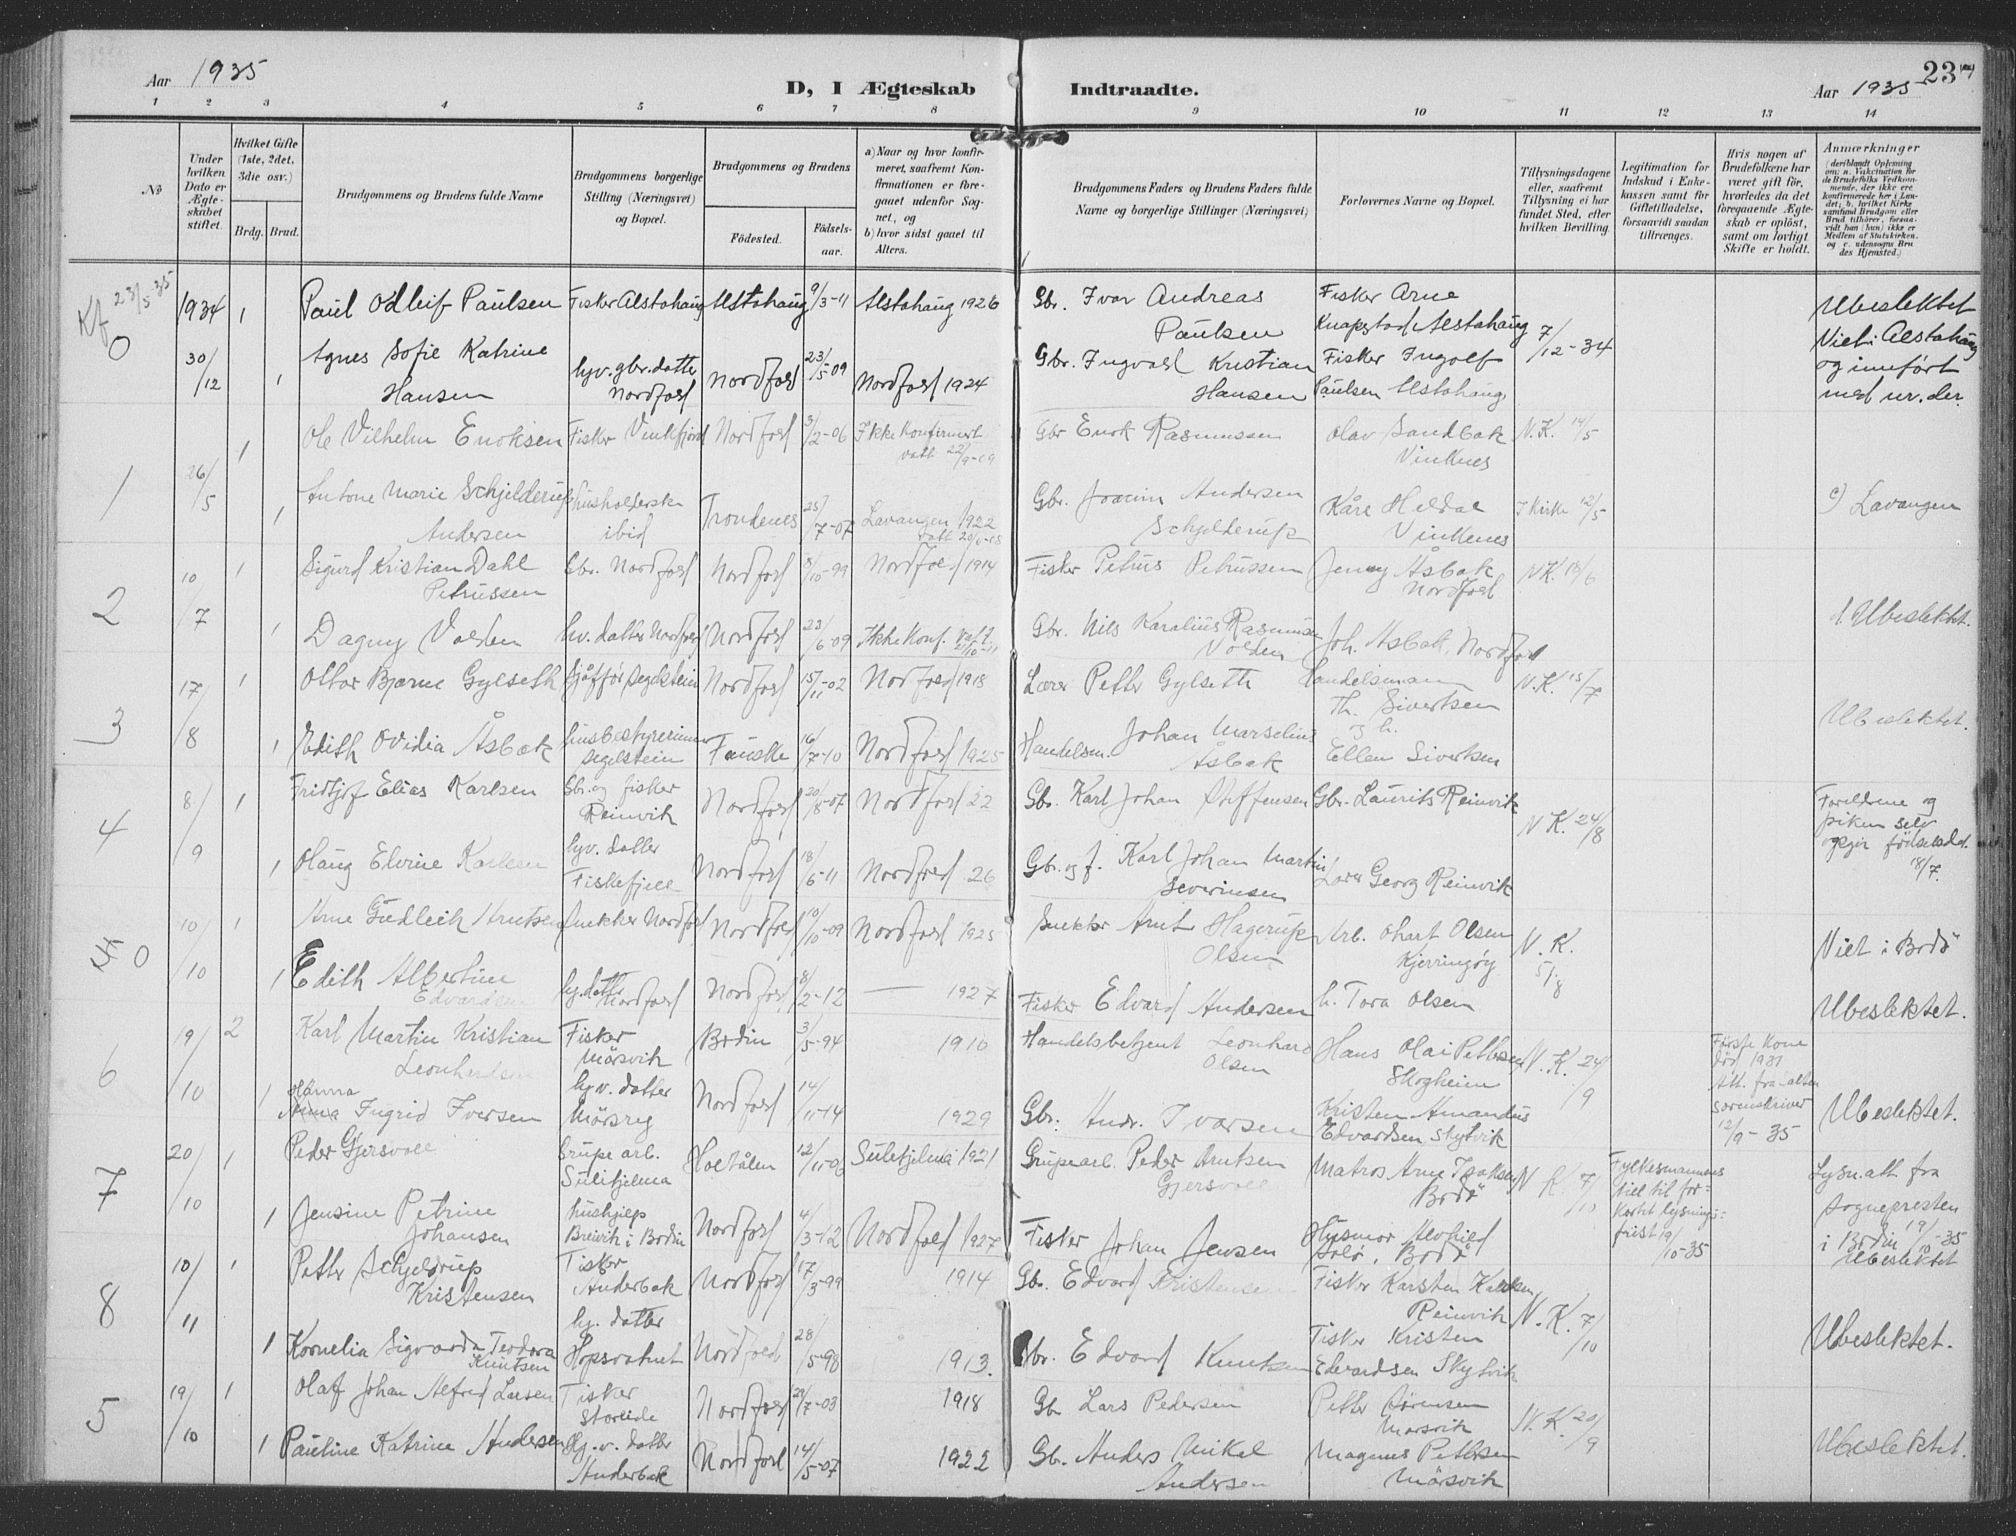 Aar 1935
D, I Ægteskab Indtraadte.
Aar 1935
23
1 2 3 4 5 6 7 8 9 10 11 12 13 14
No
Under hvilken Dato er Ægteskabet stiftet.
Hvilket Gifte (1ste, 2det, 3die osv.)
Brdg. Brud.
Brudgommens og Brudens fulde Navne
Brudgommens borgerlige Stilling (Næringsvei) og Bopæl.
Brudgommens og Brudens
Fødested.
Fødselsaar.
a) Naar og hvor konfirmeret, saafremt Konfirmationen er foregaaet udenfor Sognet, og
b) hvor sidst gaaet til Alters.
Brudgommens Faders og Brudens Faders fulde Navne og borgerlige Stillinger (Næringsvei)
Forlovernes Navne og Bopæl.
Tillysningsdagene eller, saafremt Tillysning ei har fundet Sted, efter hvilken Bevilling.
Legitimation for Indskud i Enkekassen samt for Giftetilladelse, forsaavidt saadan tiltrænges.
Hvis nogen af Brudefolkene har været gift før, hvorledes da det foregaaende Ægteskab er opløst, samt om lovligt Skifte er holdt.
Anmærkninger
(deriblandt Oplysning om: a. Vakcination for de Brudefolks Vedkommende, der ikke ere konfirmerede her i Landet; b. hvilket Kirkesamfund Brudgom eller Brud tilhører, forsaavidt han (hun) ikke er Medlem af Statskirken. og c. udensogns Brudes Hjemsted.)
Kf 23/5-35
0 1934 30/12 1 Paul Odleif Paulsen Fisker Alstahaug Alstahaug 9/3-11 Alstahaug 1926 Gbr. Ivar Andreas Paulsen Fisker Arne Knapstad Alstahaug 7/12-34 Ubeslektet Viet i Alstahaug og innført med nr. der.
1 Agnes Sofie Katrine Hansen hjv. gbr. datter Nordfold Nordfold 23/5-09 Nordfold 1924 Gbr. Ingvald Kristian Hansen Fisker Ingolf Paulsen Alstahaug
1 26/5 1 Ole Vilhelm Enoksen Fisker Vinkfjord Nordfold 3/2-06 Ikke konfirmert 22/9-19 Gbr Enok Rasmussen Olav Sandbak Vinknes N.K. 14/5
1 Antone Marie Schjelderup Andersen husholderske ibid Trondenes 25/7-07 Lavangen 1922 Gbr. Joacim Andersen Schjelderup Kåre Heldal Vinkenes I Kirke 12/5 c) Lavangen
2 10/7 1 Sigurd Kristian Dahl Petrussen Gbr. Nordfold Nordfold 8/10-99 Nordfold 1914 Fisker Petrus Petrussen Jenny Åsbak Nordfold N.K. 18/6
1 Dagny Valen hv. datter Nordfold Nordfold 23/6-09 Ikke Konf. Gbr. Nils Karolius Rasmussen Joh. Åsbak, Nordfold Ubeslektet.
3 17/8 1 Ottar Bjarne Gylseth Sjåfør Segelstein Nordfold 15/11-02 Nordfold 1918 Lærer Petter Gylseth Handelsmann Th. Sivertsen og h. N.K. 15/7
1 Edith Ovidia Åsbak husbestyrerinne Segelstein Fauske 16/7-10 Nordfold 1925 Handelsm. Johan Marselius Åsbak Ellen Sivertsen Ubeslektet.
4 8/9 1 Fridtjof Elias Karlsen Gbr. og fisker Reinvik Nordfold 20/8-07 Nordfold 22 Gbr. Karl Johan Steffensen Gbr. Laurits Reinvik N.K. 24/8 Foreldrene og piken selv opgir fødselsdat. 18/7.
1 Olaug Elvine Karlsen hjv. datter Fiskefjell Nordfold 18/6-11 Nordfold 26 Gbr. og f. Karl Johan Martin Severinsen Lærer Georg Reinvik
0 10/10 1 Arne Gudleik Arntsen Snekker Nordfold Nordfold 10/10-09 Nordfold 1925 Snekker Arnt Hagerup Olsen Arb. Ohart Olsen Kjerringøy N.K. 5/8 Viet i Bodø
1 Edith Albertine Edvardsen hj. datter Nordfold Nordfold 8/2-12 — 1927 Fisker Edvard Andersen h. Tora Olsen Ubeslektet.
6 19/10 2 Karl Martin Kristian Leonhardsen Fisker Mørsvik Bodin 3/5-94 1910 Handelsbetjent Leonhard Olsen Hans Olai Pettersen Skogheim N.K. 24/9 Første Kone død 1931 Att. fra Salten sorenskriver 12/9-35
1 Hanna Ingrid Iversen hjv. datter Mørsry Nordfold 14/11-14 1929 Gbr. Andr. Ivarsen Kristen Amandus Edvardsen Skytvik Ubeslektet.
7 20/10 1 Peder Gjersvoll Grupearb. Sulitjelma Holtålen 12/11-06 Sulitjelma 1921 Grupearb. Peder Arntsen Gjersvoll Matros Arne Isaksen Bodø N.K. 7/10 Fylkesmannens till til forkortet lysningsfrist 19/10-35 Lysn. att fra Sognepresten i Bodin 19/10-35 Ubeslektet
1 Jensine Petrine Johansen hushjelp Breivik i Bodin Nordfold 4/3-12 Nordfold 1927 Fisker Johan Jensen Husmor Bodø
8 10/11 1 Petter Schjeldrup Kristensen Fisker Anderbak Nordfold 17/3-99 1914 Gbr. Edvard Kristensen Fisker Karsten Karlsen Reinvik N.K. 7/10
1 Kornelia Sigvarda Teodora Knutsen hj. datter Hopsvatnet Nordfold 28/5-98 1913. Gbr. Edvard Knutsen Fisker Kristen Edvardsen Skytvik Ubeslektet.
5 19/10 1 Olaf Johan Alfred Larsen Fisker Storeide Nordfold 29/7-03 1918 Gb Lars Pedersen Petter Sørensen Mørsvik N.K. 20/9
1 Pauline Katrine Andersen Hj. v. datter Anderbak Nordfold 14/5-07 1922 Gb. Anders Mikal Andersen Magnus Pettersen Mørsvik Ubeslektet.